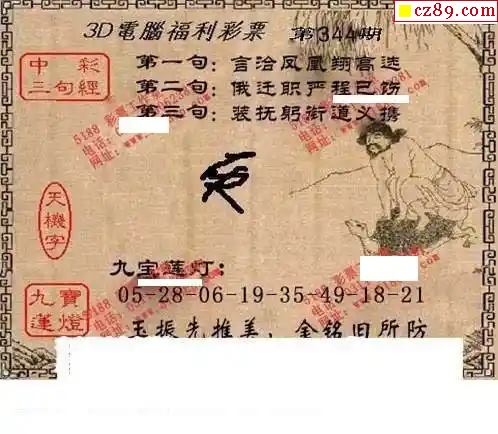 cz89.com
3D電腦福利彩票 第344期
中彩
三句經
第一句：言洽凤凰翔高选
第二句：俄迁职严程已饬
第三句：装抚躬衔道义携
天機字
九宝莲灯：
九寶
蓮燈
05-28-06-19-35-49-18-21
玉振先推美，金铭旧所防